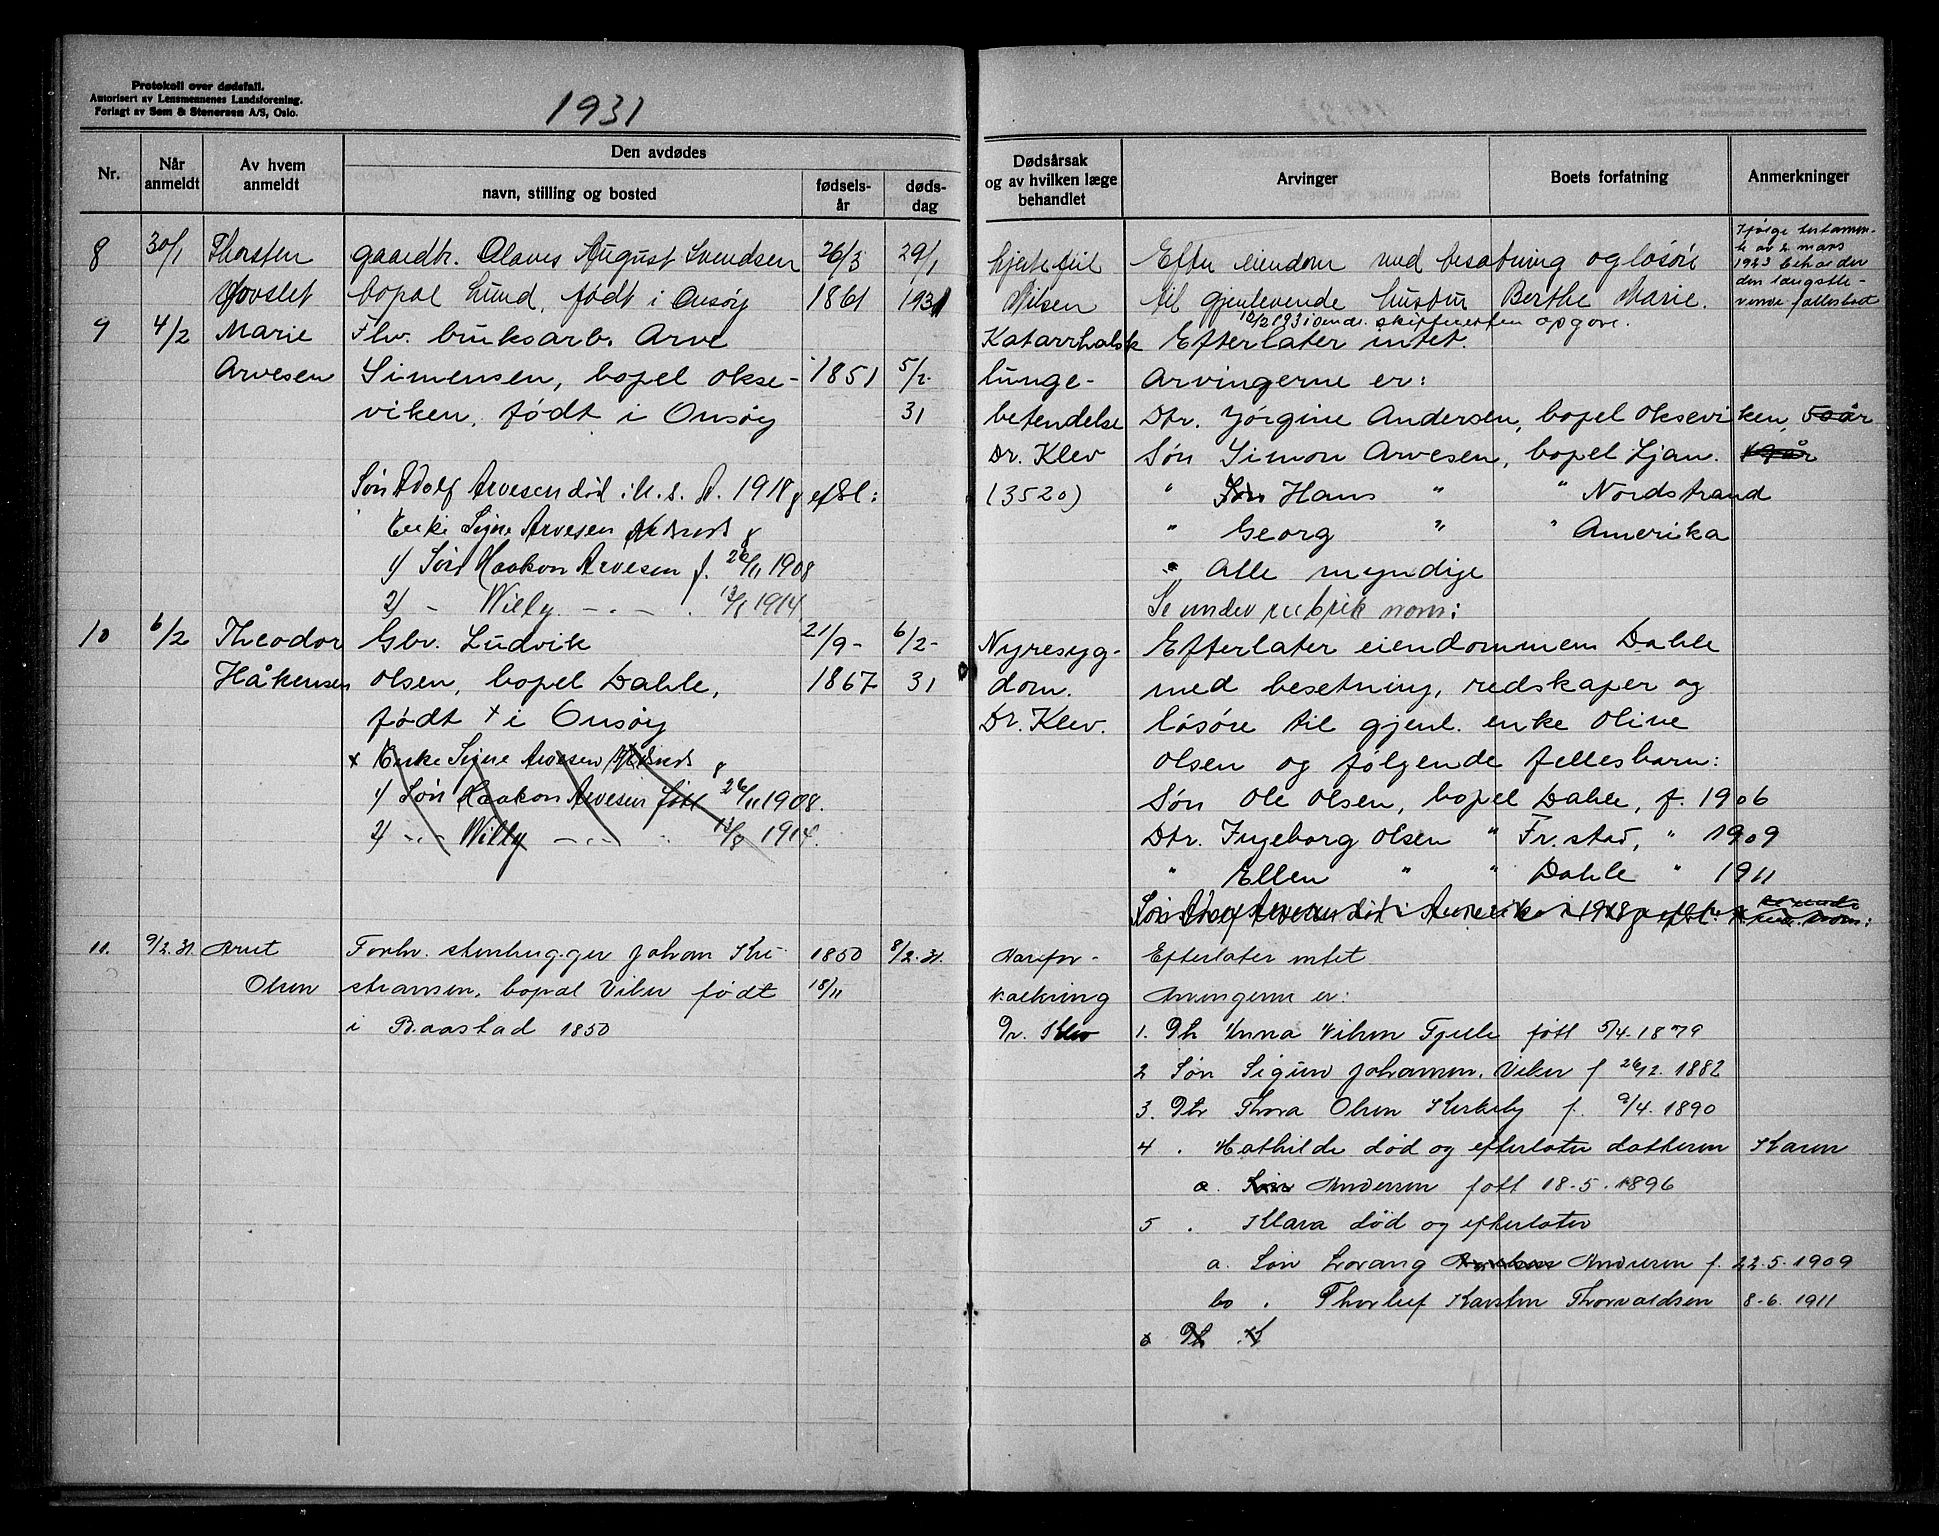 Protokoll over dødsfall.
Autorisert av Lensmennenes Landsforening.
Forlagt av Sem & Stenersen A/S, Oslo.
1931
Nr.
Når anmeldt
Av hvem anmeldt
Den avdødes
navn, stilling og bosted
fødsels-år
døds-dag
Dødsårsak og av hvilken læge behandlet
Arvinger
Boets forfatning
Anmerkninger
8 30/1 Thorsten gaardbr. Olaves August Svendsen 26/3 29/1
bopæl Lund, født i Onsøy 1861 1931
Hjertefeil
Nilsen
Efter eiendom med besætning og løsøre
til gjenlevende hustru Berthe Marie.
12/2 1931 skifteretten opgave.
Ifølge testamen-
te av 2 mars
1923 beholder
den længstle-
vende fællesboet
9 4/2 Marie Fhv. bruksarb. Arve
Arvesen Simensen, bopel Okse- 1851 5/2
viken, født i Onsøy 31
Søn Adolf Arvesen død i U.S.A. 1918 & eftl:
Enke Signe Arvesen
1) Søn Haakon Arvesen f. 26/11 1908
2) - Willy - - - 12/8 1914
Katarrhalsk
lunge-
betendelse
Dr. Klev
(3520)
Efterlater intet.
Arvingerne er:
Dtr. Jørgine Andersen, bopel Okseviken, 50 år
Søn Simon Arvesen, bopel Ljan.
" Hans " " Nordstrand
" Georg " " Amerika
Alle myndige
Se under rubrik navn:
10 6/2 Theodor Gbr. Ludvik 21/9- 6/2-
Håkensen Olsen, bopel Dahle, 1867 31
født i Onsøy
x Enke Signe Arvesen
1) Søn Haakon Arvesen født 26/11 1908.
2) - - Willy - - - 12/8 1914.
Nyresyg-
dom.
Dr. Klev.
Efterlater eiendommen Dahle
med besetning, redskaper og
løsøre til gjenl. enke Oline
Olsen og følgende fellesbarn:
Søn Ole Olsen, bopel Dahle, f. 1906
Dtr. Ingeborg Olsen " Fr.stad, " 1909
" Ellen " " Dahle " 1911
Søn Adolf Arvesen død i Amerika i 1918
11. 9/2.31 Arnt Forhv. stenhugger Johan Kri- 1850 8/2.31.
Olsen stiansen, bopæl Viker født 18/11
i Baastad 1850
Aarefor-
kalkning
Dr. Klev
Efterlater intet
Arvingerne er:
1. Dtr Anna Nilsen Fjelle født 5/4.1879
2 Søn Sigurd Johansen, Viker f 26/12. 1882
3. Dtr Thora Olsen Kirkeby f. 9/4. 1890
4 . Mathilde død og efterlater datteren Karen
a. Andersen født 18.5.1896
5 . Klara død og efterlater
a. Søn Lorang Andersen f. 22.5.1909
b . Thorlief Karsten Thorvaldsen 8-6. 1911